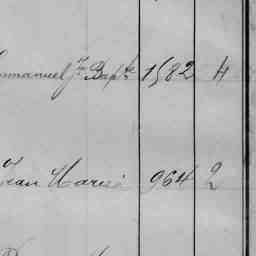 Emmanuel Jn Bapte 1582 4
Jean Marie 964 2